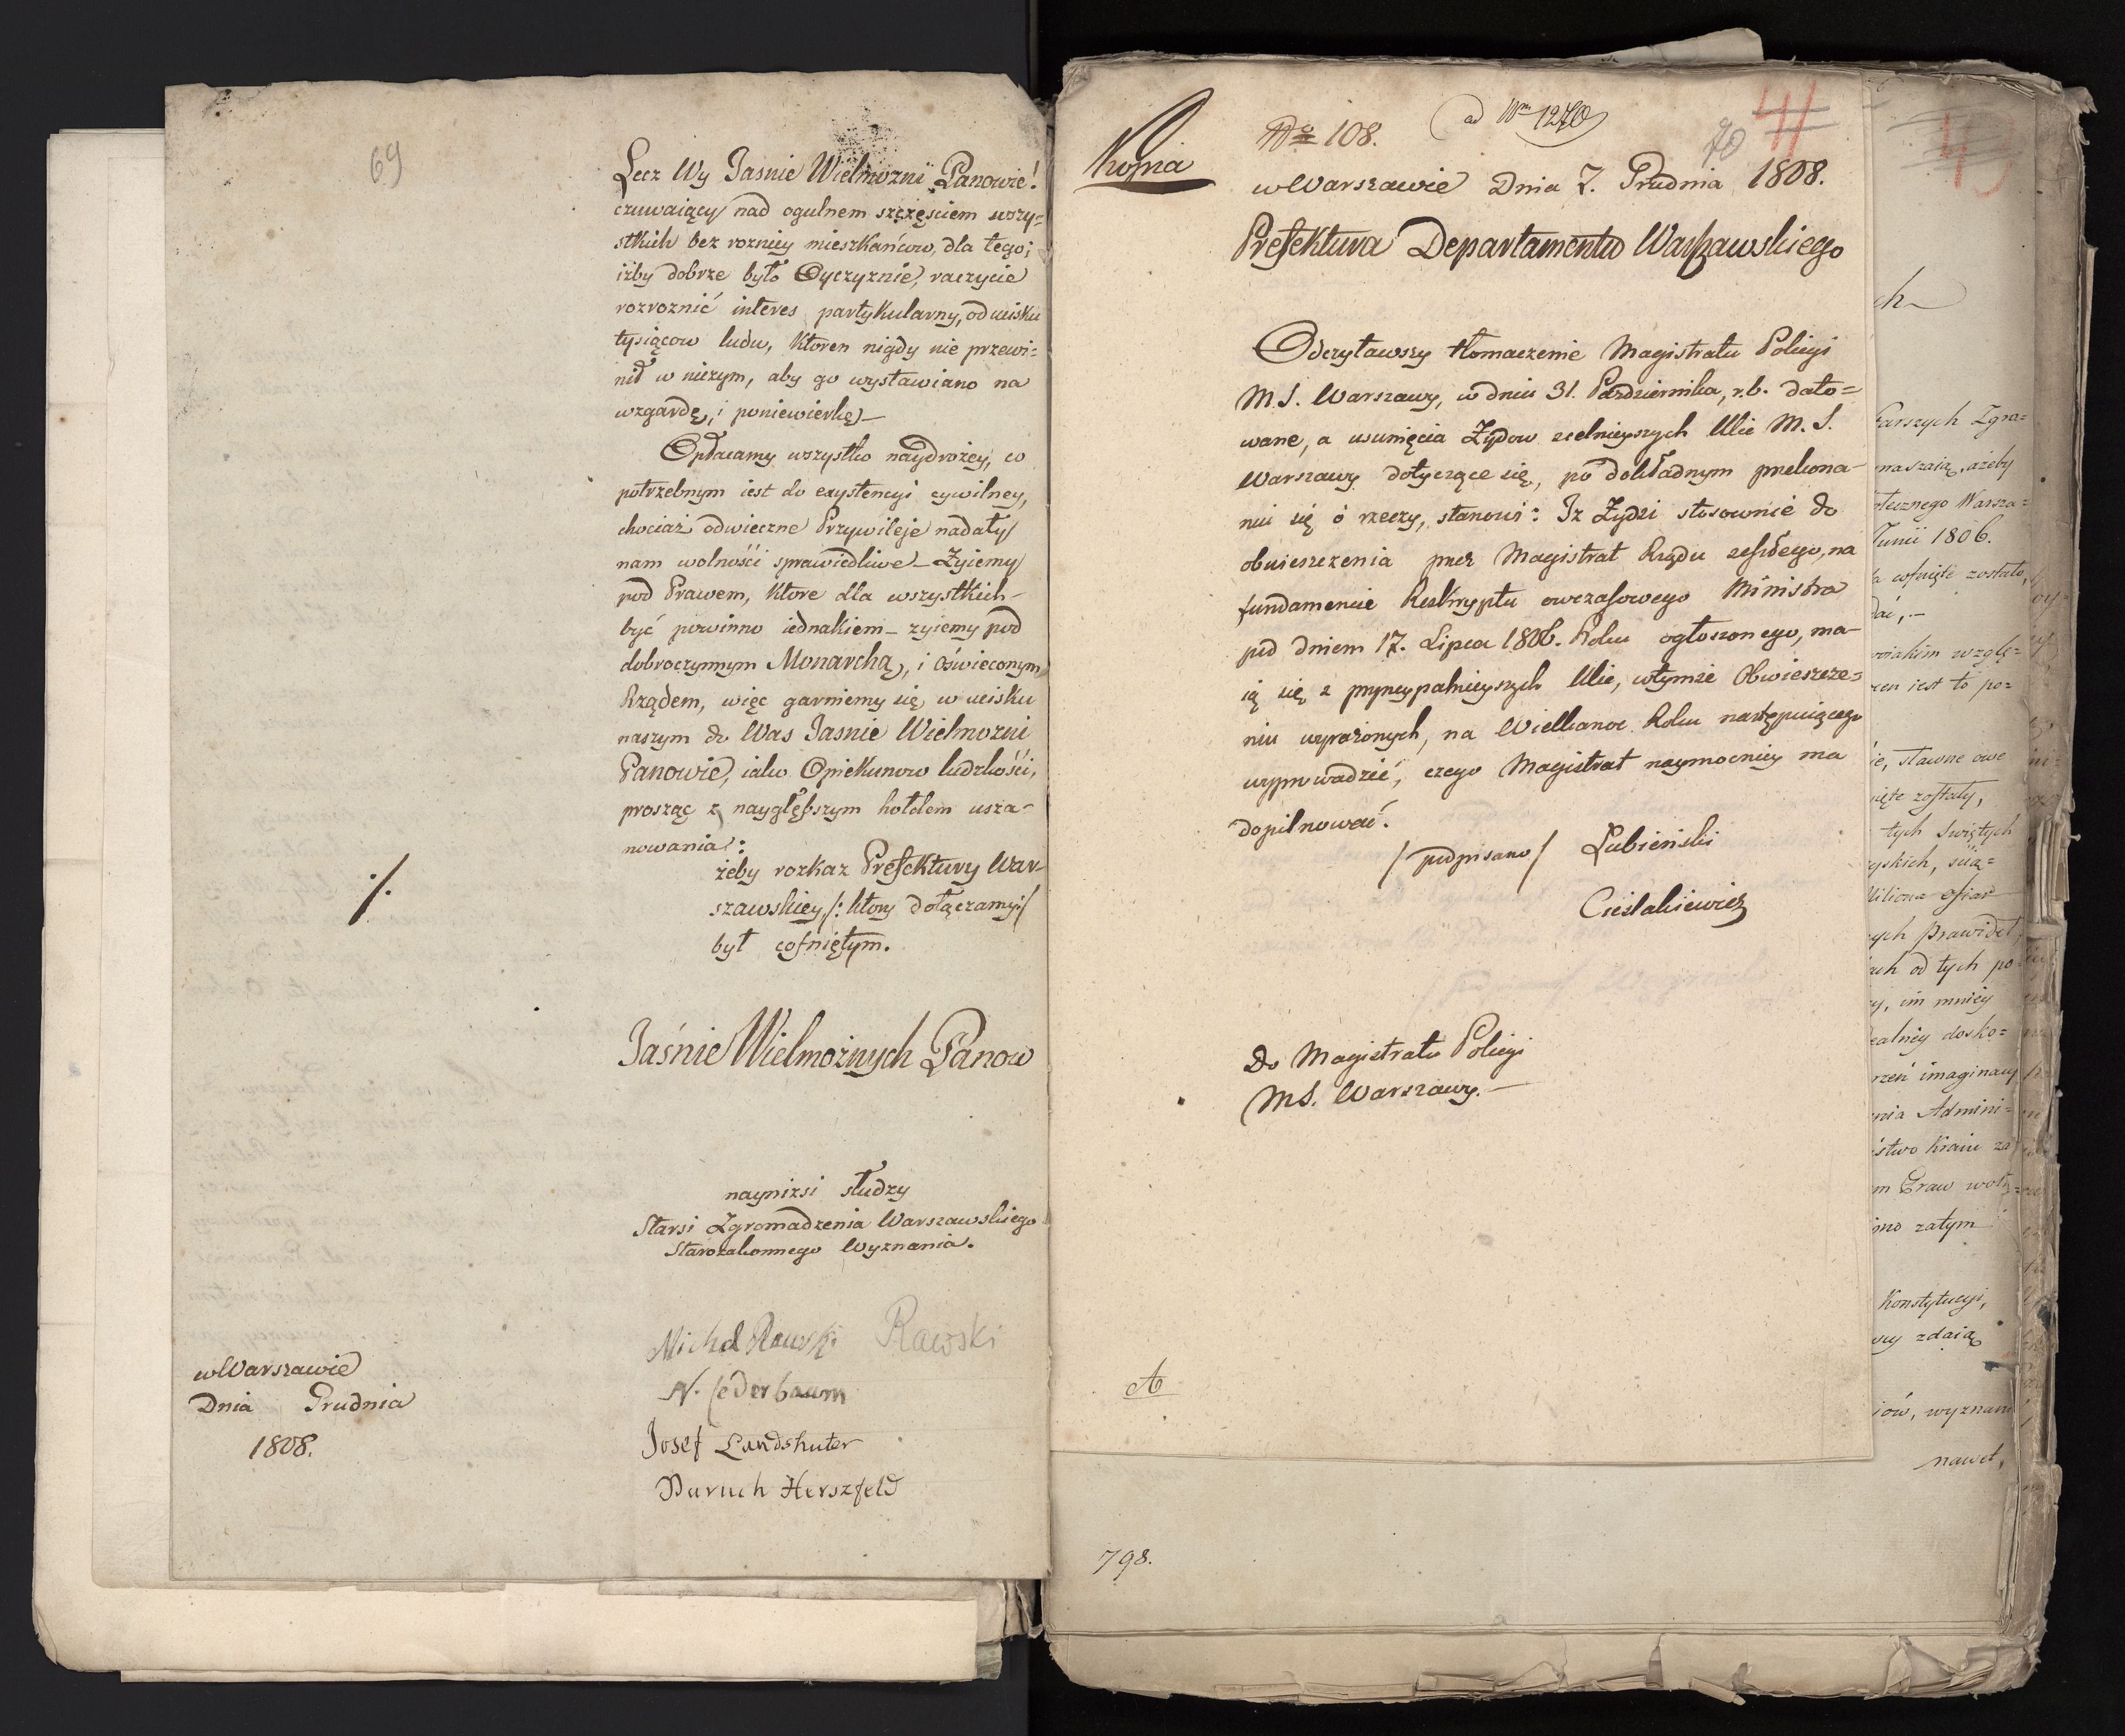 69
Lecz Wy Jasnie Wielmozni Panowie!
czuwaiący nad ogulnem szczęsciem wszy=
stkich bez roznicy mieszkańcow, dla tego;
iżby dobrze było Oyczyznie, raczycie
rozroznić interes partykularny, od ucisku
tysiącow ludu, ktoren nigdy nie przewi=
nił w niczym, aby go wystawiano na
wzgardę, i poniewierkę)—
Opłacamy wszystko naydrożey, co
potrzebnym iest do exystencyi cywilney,
chociaż odwieczne Przywileje nadały
nam wolności sprawiedliwe— Żyiemy
pod Prawem, ktore dla wszystkich—
być powinno iednakiem— zyiemy pod
dobroczynnym Monarchą, i oświeconym
Rządem, więc garniemy się, w ucisku
naszym do Was Jasnie Wielmozni
Panowie, iako Opiekunow ludzkości,
prosząc z naygłębszym hołdem usza=
nowania:
żeby rozkaz Prefektury War=
szawskiey /: ktory dołączamy :/
był cofniętym.
·/.
Jaśnie Wielmożnych Panow
naynizsi słudzy
Starsi Zgromadzenia Warszawskiego
Starozakonnego Wyznania.
Michel Rawski Rawski
N. Cederbaum
Josef Landshuter
Baruch Herszfeld
w Warszawie
Dnia Grudnia
1808.
Kopia
No 108.
ad Nrm 1270
70
41
w Warszawie Dnia 7. Grudnia 1808.
Prefektura Departamentu Warszawskiego
Odczytawszy tłomaczenie Magistratu Policyi
M. S. Warszawy, w dniu 31. Października, r. b. dato=
wane, a usunięcia Żydow z celnieyszych Ulic M. S.
Warszawy dotyczące się, po dokładnym przekona=
niu się o rzeczy, stanowi: Iz Żydzi stosownie do
obwieszczenia przez Magistrat Rządu zeszłego, na
fundamencie Reskryptu owczasowego Ministra
pod dniem 17. Lipca 1806. Roku ogłoszonego, ma=
ią się z pryncypalnieyszych Ulic, w tymże Obwieszcze=
niu wyrażonych, na Wielkanoc Roku następuiącego
wyprowadzić, czego Magistrat naymocniey ma
dopilnować.
/ podpisano / Łubieński
Cieslakiewicz
Do Magistratu Policyi
M S. Warszawy.—
A
798.
ch
Starszych Zgro=
naszaią, ażeby
tołecznego Warsza=
Junii 1806.
cofnięte zostało,
dać,.—
wzglę=
iest to po=
sławne owe
zostały,
tych Swiętych
Miliona ofiar
Prawideł,
od tych po=
im mniey
dosko=
imaginacy
Admini=
Kraiu za
Praw
zatym
Konstytucyi,
zdaią
wyznani
nawet,